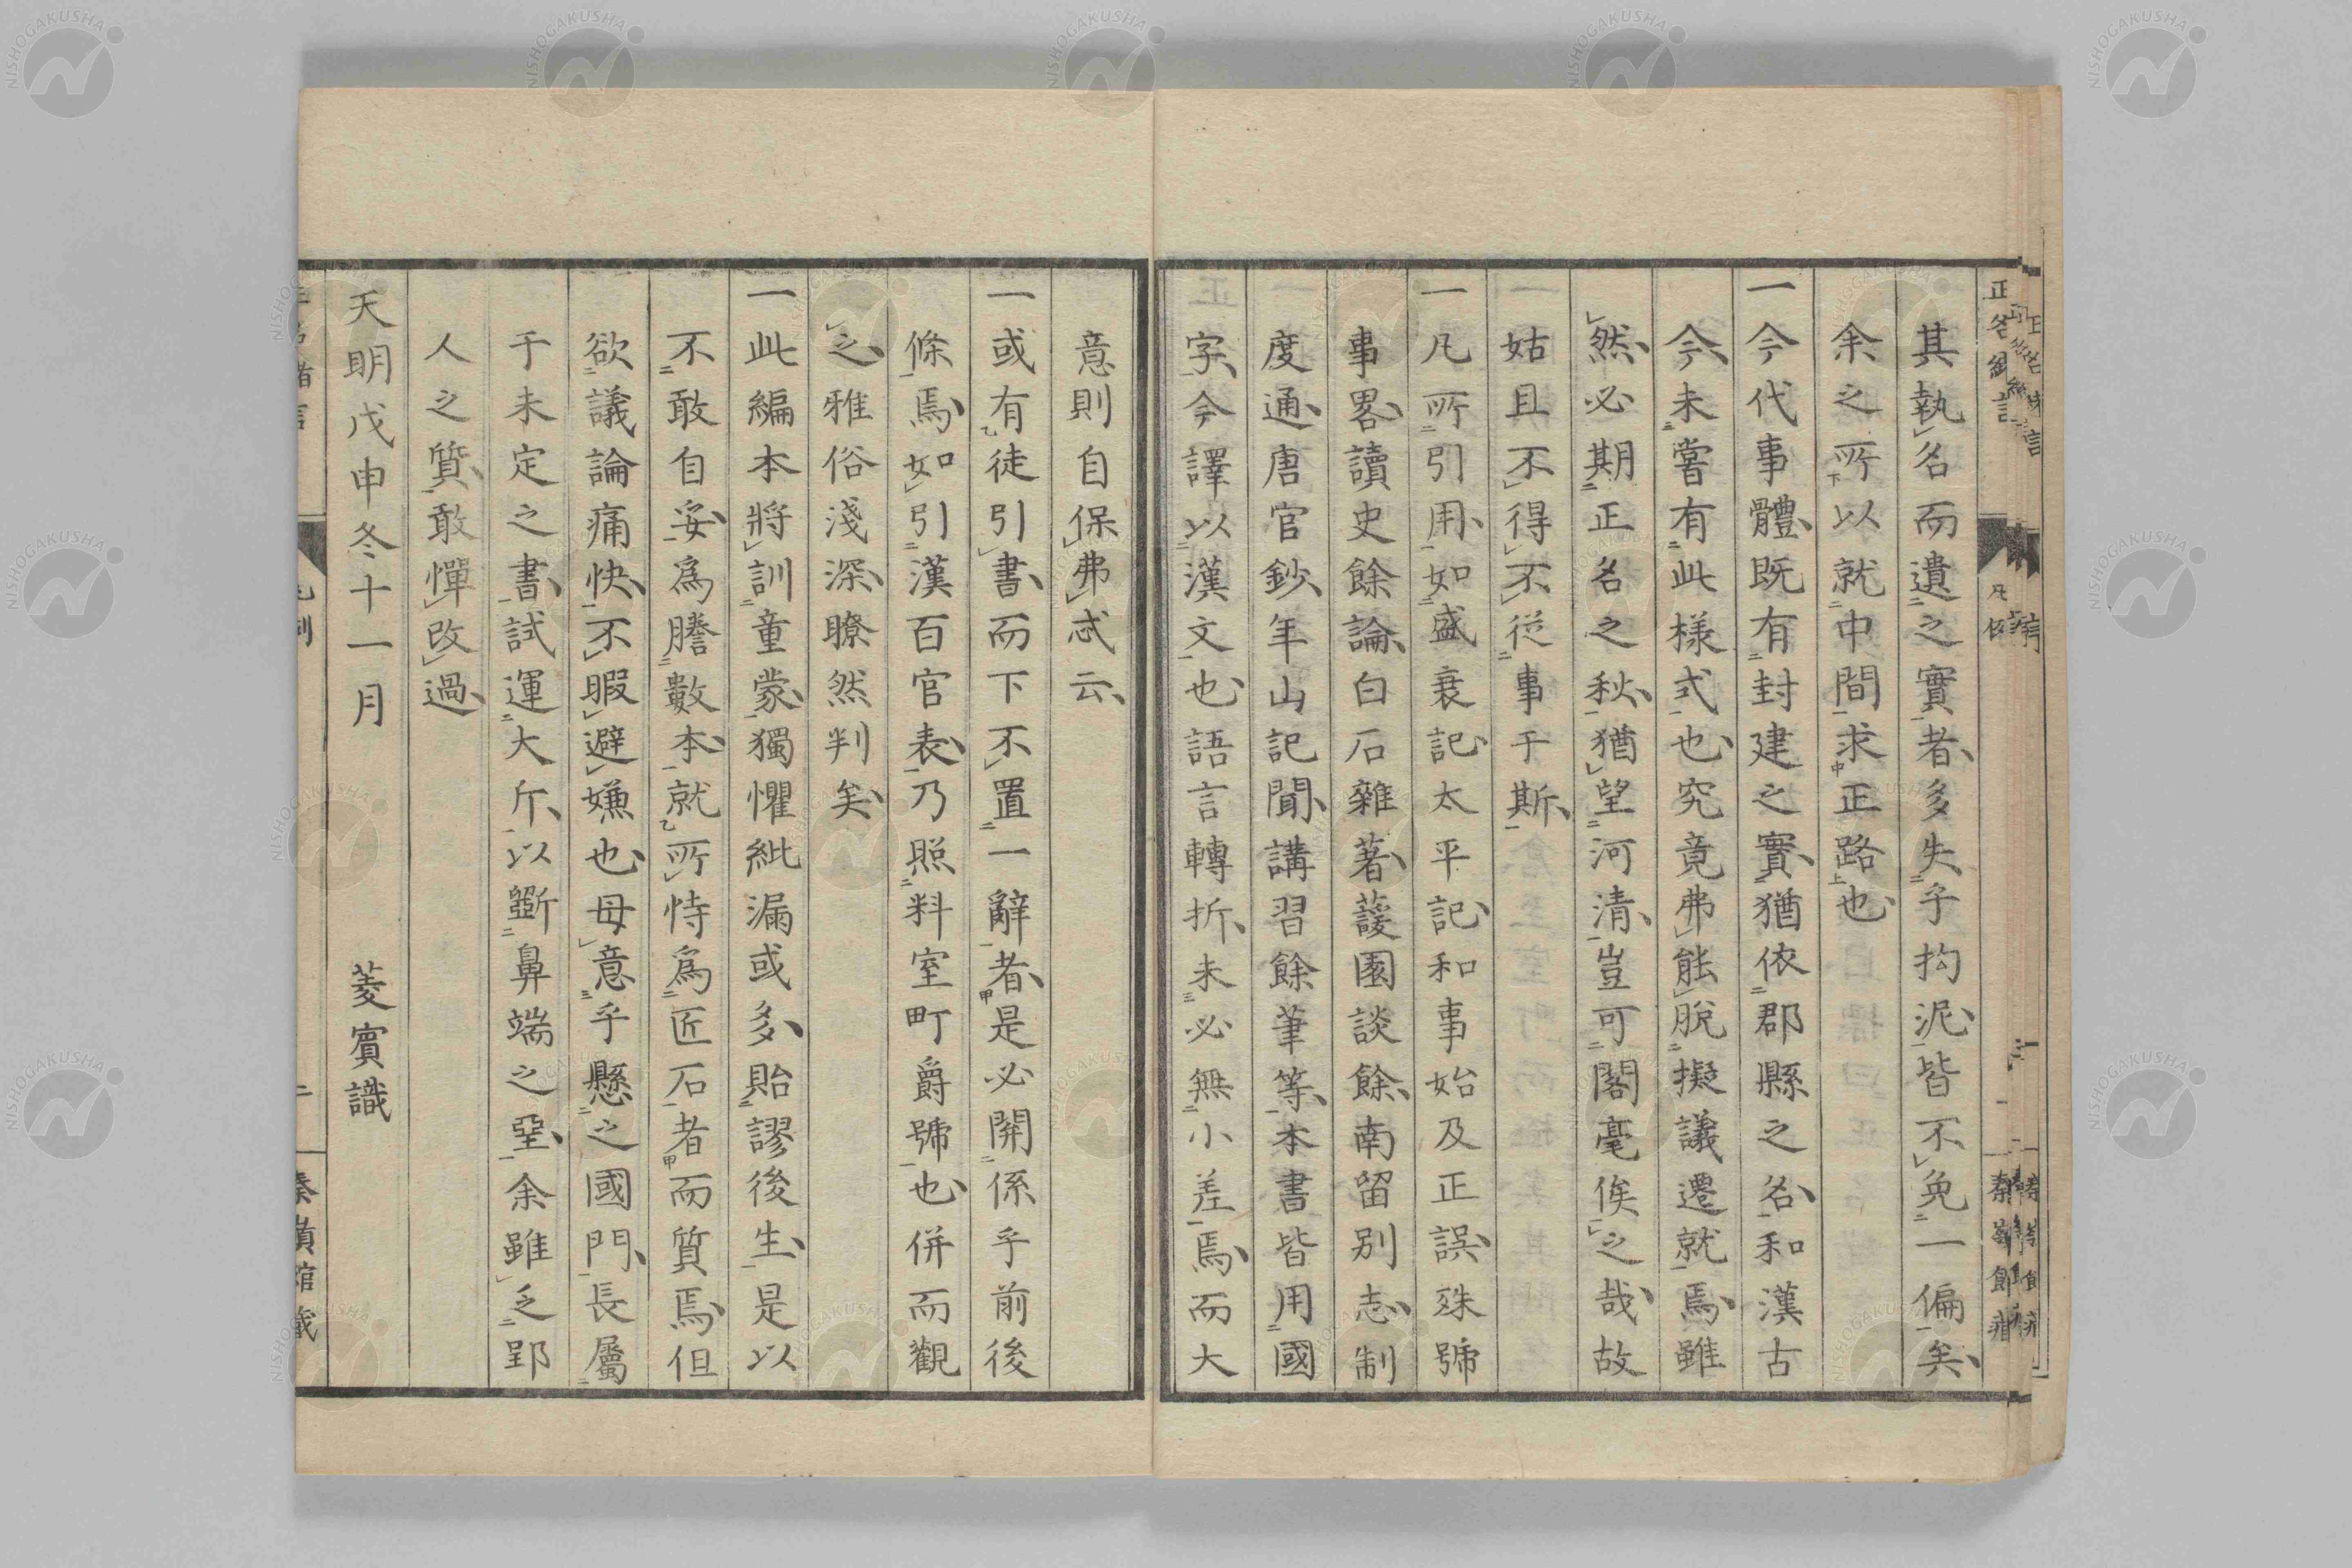 其執名而遺之實者多失乎拘泥皆不免一偏矣
余之所以就中間求正路也
一今代事體既有封建之實猶依郡縣之名和漢古
今未嘗有此樣式也究竟弗能脫擬議遷就焉雖
然必期正名之秋猶望河清豈可閣毫俟之哉故
姑且不得不從事于斯
一凡所引用如盛衰記太平記和事始及正誤殊號
事畧讀史餘論白石雜著蘐園談餘南留別志制
度通唐官鈔年山記聞講習餘筆等本書皆用國
字今譯以漢文也語言轉折未必無小差焉而大
意則自保弗忒云
一或有徒引書而下不置一辭者是必關係乎前後
條焉如引漢百官表乃照料室町爵號也併而觀
之雅俗淺深瞭然判矣
一此編本將訓童蒙獨懼紕漏或多貽謬後生是以
不敢自妥為謄數本就所恃為匠石者而質焉但
欲議論痛快不暇避嫌也毋意乎懸之國門長屬
于未定之書試運大斤以斲鼻端之堊余雖乏郢
人之質敢憚改過
天明戊申冬十一月 菱賓識
凡例
NISHOGAKUSHA